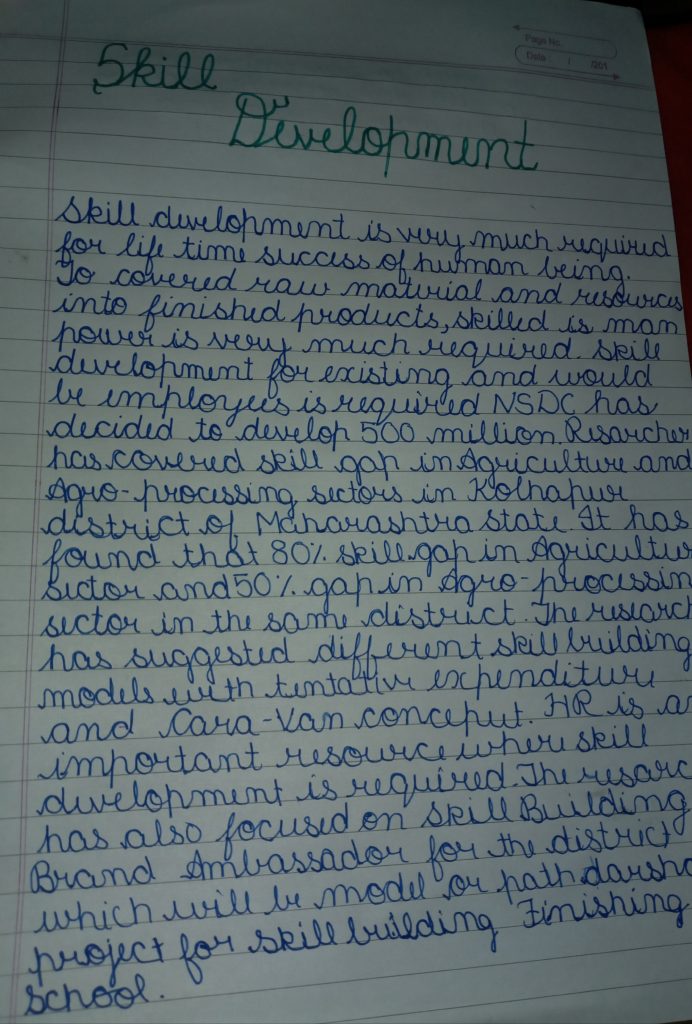 Page No.
Date / /201
Skill
Development
Skill development is very much required
for life time success of human being.
To covered raw material and resources
into finished products, skilled is man
power is very much required. Skill
development for existing and would
be employees is required NSDC has
decided to develop 500 million. Risarcher
has covered skill gap in Agriculture and
Agro-processing sectors in Kolhapur
district of Maharashtra state. It has
found that 80% skill gap in Agricultur
sector and 50% gap in Agro-processin
sector in the same district. The research
has suggested different skill building
models with tentative expenditure
and Cara-Van conceput. HR is a
important resource where skill
development is required. The researc
has also focused on skill Building
Brand Ambassador for the district
which will be model or path darsha
project for skill building Finishing
school.